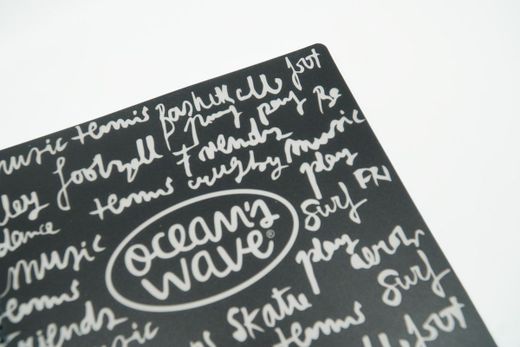 music tennis Basketball foot
play play Be
ley football friends
tennis rugby music
dance play
ocean's surf FRI
wave®
music play
tennis skate surf
friends tennis foot
music